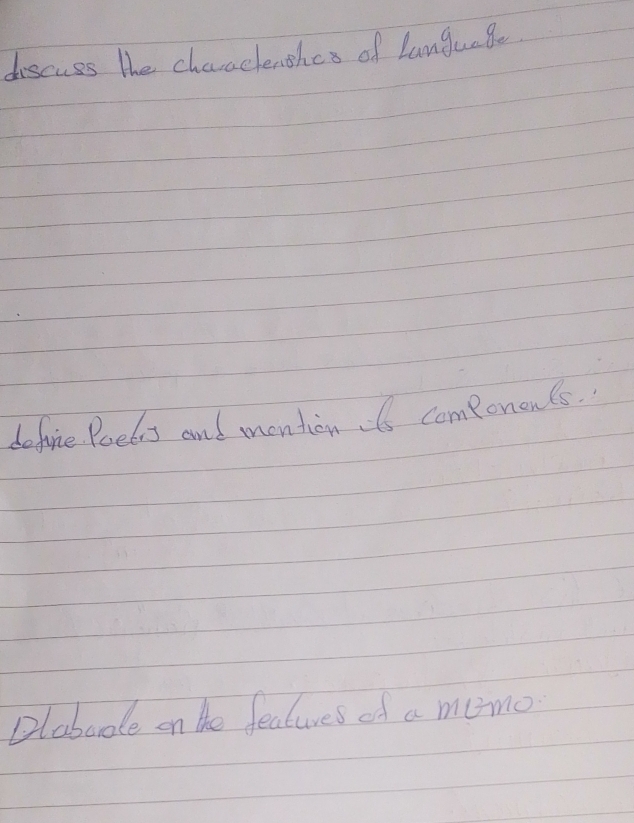 discuss the characteristics of Language.
define Poetry and mention its components.
Elaborate on the features of a memo.